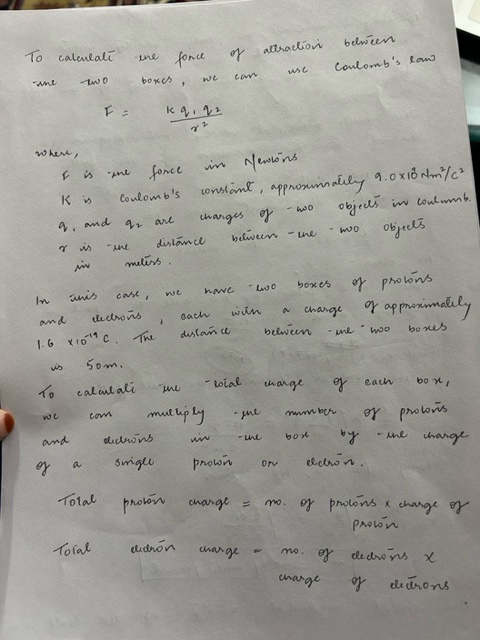 To calculate the force of attraction between
the two boxes, we can use Coulomb's law
F = k q₁ q₂ / r²
where,
F is the force in Newtons
K is Coulomb's constant, approximately 9.0 x 10⁹ Nm²/C²
q₁ and q₂ are charges of two objects in coulumb.
r is the distance between the two objects
in meters.
In this case, we have two boxes of protons
and electrons, each with a charge of approximately
1.6 x 10⁻¹⁹ C. The distance between the two boxes
is 50m.
To calculate the total charge of each box,
we can multiply the number of protons
and electrons in the box by the charge
of a single proton or electron.
Total proton charge = no. of protons x charge of
proton
Total electron charge = no. of electrons x
charge of electrons